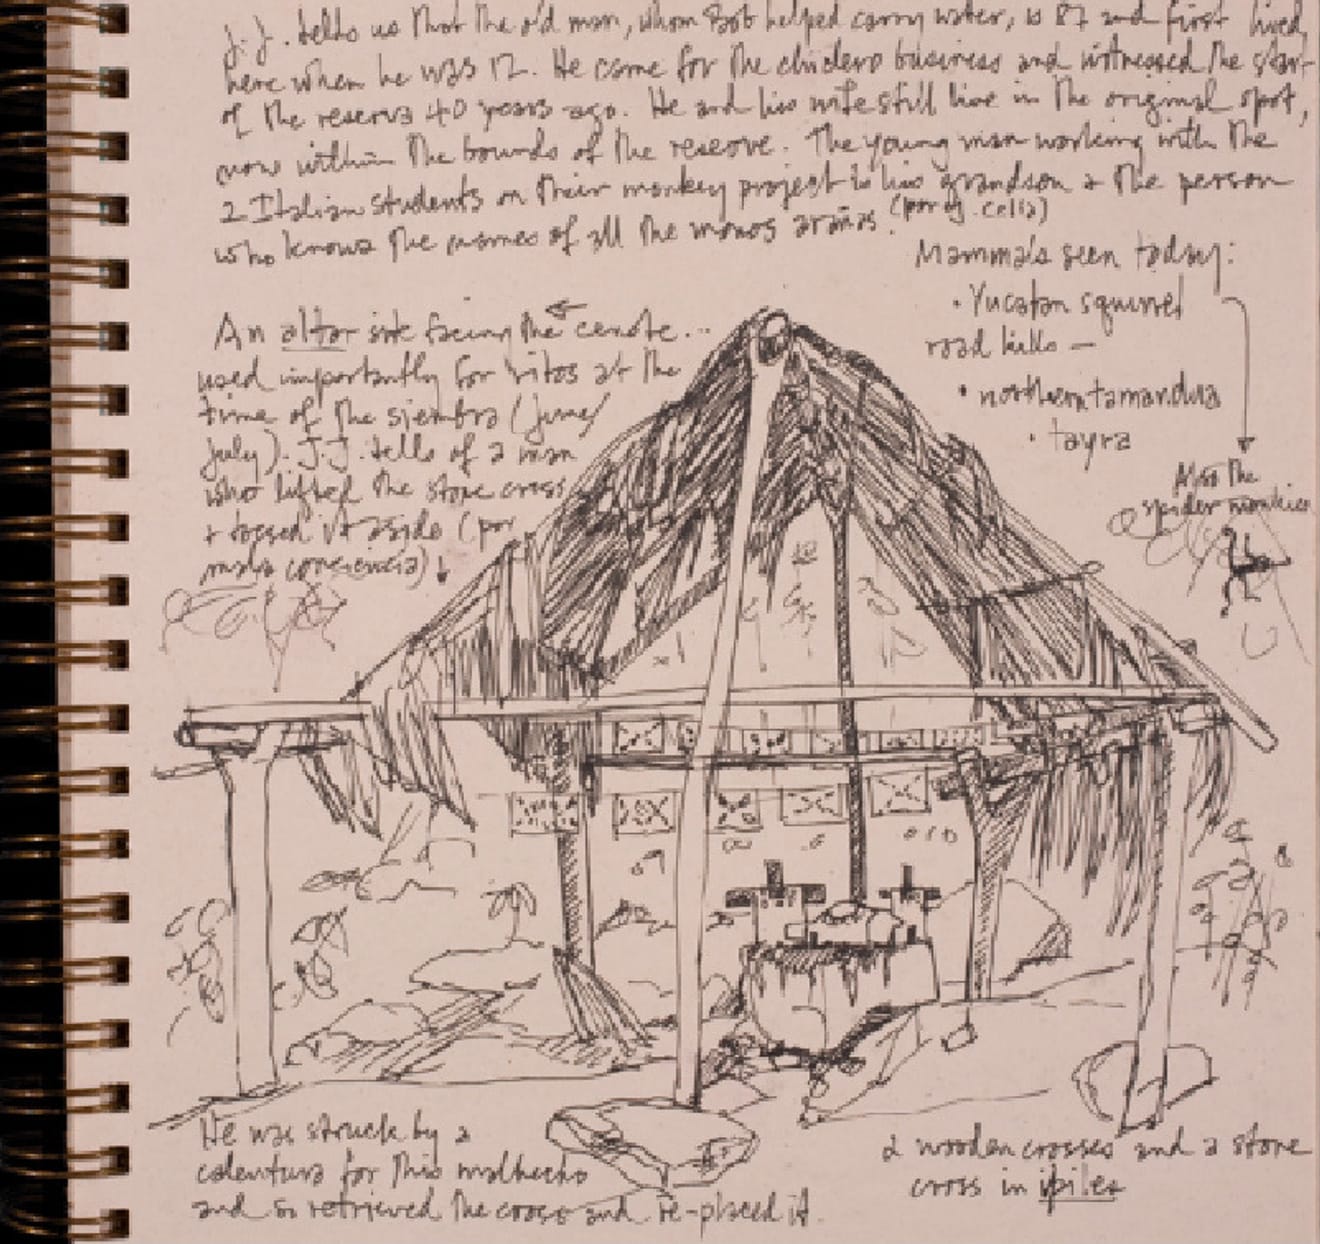 J.J. tells us that the old man, whom Bob helped carry water, is 87 and first lived
here when he was 12. He came for the chiclero business and witnessed the start
of the reserva 40 years ago. He and his wife still live in the original spot,
now within the bounds of the reserve. The young man working with the
2 Italian students on their monkey project is his grandson & the person
who knows the names of all the monos arañas. (por ej. Celia)
Mammals seen today:
• Yucatan squirrel
road kills —
• northern tamandua
• tayra
Also the
spider monkies
An altar site facing the cenote...
used importantly for ritos at the
time of the siembra (June/
July). J.J. tells of a man
who lifted the stone cross
& tossed it aside (por
mala conciencia)
He was struck by a
calentura for this malhecho
and so retrieved the cross and re-placed it.
2 wooden crosses and a stone
cross in